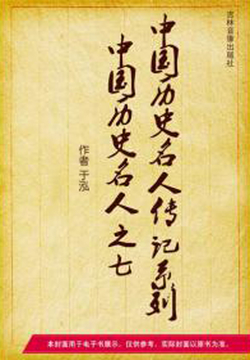 吉林音像出版社
中国历史名人传记系列
中国历史名人之七
作者 于泓
本封面用于电子书展示，仅供参考，实际封面以原书为准。